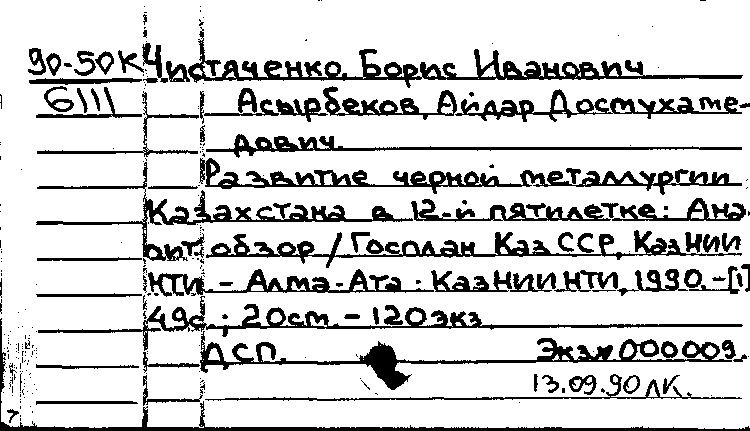 90-50К Чистяченко, Борис Иванович
6111 Асырбеков, Айдар Достухаме-
дович.
Развитие черной металлургии
Казахстана в 12-й пятилетке: Ана-
лит. обзор / Госплан КазССР, КазНИИ
НТИ. - Алма-Ата : КазНИИНТИ, 1990. - [1]
49с. ; 20см. - 120экз.
ДСП. Экз№000009.
13.09.90 ЛК.
7